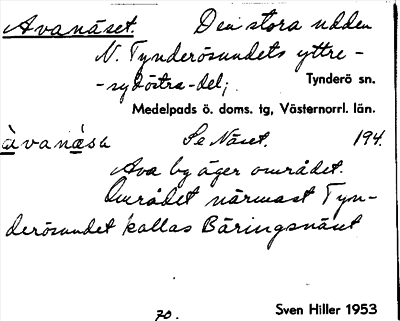 Avanäset. Den stora udden
N. Tynderösundets yttre-
-sydöstra-del; Tynderö sn.
Medelpads ö. doms. tg, Västernorrl. län.
àvanä̀sɛ Se Näset. 194.
Ava by äger området.
Området närmast Tyn-
derösundet kallas Bäringsnäset
70. Sven Hiller 1953